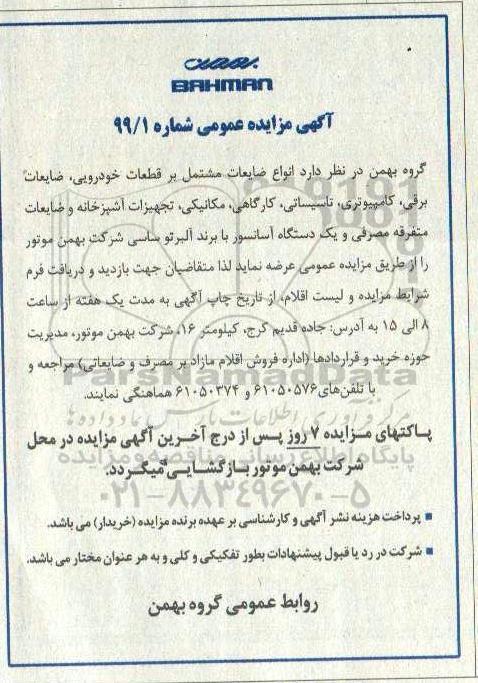 بهمن
BAHMAN
آگهی مزایده عمومی شماره ۹۹/۱
گروه بهمن در نظر دارد انواع ضایعات مشتمل بر قطعات خودرویی، ضایعات
برقی، کامپیوتری، تاسیساتی، کارگاهی، مکانیکی، تجهیزات آشپزخانه و ضایعات
متفرقه مصرفی و یک دستگاه آسانسور با برند آلبرتو ساسی شرکت بهمن موتور
را از طریق مزایده عمومی عرضه نماید لذا متقاضیان جهت بازدید و دریافت فرم
شرایط مزایده و لیست اقلام، از تاریخ چاپ آگهی به مدت یک هفته از ساعت
۸ الی ۱۵ به آدرس: جاده قدیم کرج، کیلومتر ۱۶، شرکت بهمن موتور، مدیریت
حوزه خرید و قراردادها (اداره فروش اقلام مازاد بر مصرف و ضایعاتی) مراجعه و
با تلفن‌های ۶۱۰۵۰۵۷۶ و ۶۱۰۵۰۳۷۴ هماهنگی نمایند.
ParsNamadData
مرکز فرآوری اطلاعات پارس نماد داده‌ها
پاکتهای مزایده ۷ روز پس از درج آخرین آگهی مزایده در محل
پایگاه اطلاع رسانی مناقصه و مزایده
شرکت بهمن موتور بازگشایی میگردد.
۰۲۱-۸۸۳۴۹۶۷۰-۵
▪ پرداخت هزینه نشر آگهی و کارشناسی بر عهده برنده مزایده (خریدار) می باشد.
▪ شرکت در رد یا قبول پیشنهادات بطور تفکیکی و کلی و به هر عنوان مختار می باشد.
روابط عمومی گروه بهمن